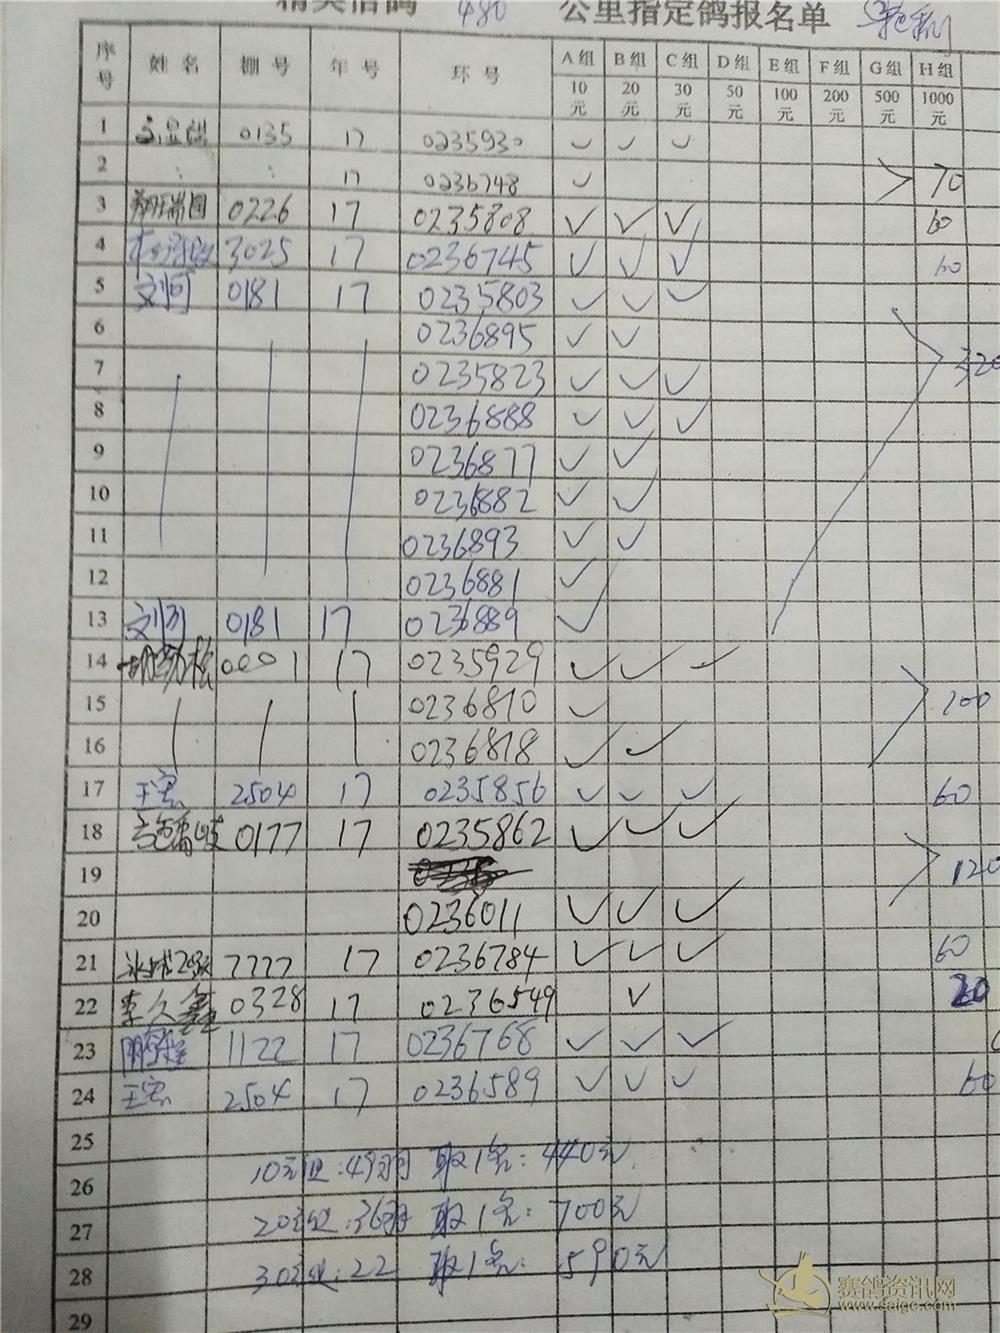 480 公里指定鸽报名单
序号 姓名 棚号 年号 环号 A组 B组 C组 D组 E组 F组 G组 H组
10元 20元 30元 50元 100元 200元 500元 1000元
1 0135 17 0235930 ✓ ✓ ✓
2 17 0236748 ✓ 70
3 0226 17 0235808 ✓ ✓ ✓ 60
4 3025 17 0236745 ✓ ✓ ✓ 60
5 0181 17 0235803 ✓ ✓ ✓
6 0236895 ✓ ✓
7 0235823 ✓ ✓ ✓ 320
8 0236888 ✓ ✓ ✓
9 0236877 ✓ ✓
10 0236882 ✓ ✓
11 0236893 ✓ ✓
12 0236881 ✓
13 0181 17 0236889 ✓
14 0001 17 0235929 ✓ ✓ ✓
15 0236810 ✓ 100
16 0236818 ✓ ✓
17 王宏 2504 17 0235856 ✓ ✓ ✓ 60
18 0177 17 0235862 ✓ ✓ ✓
19 120
20 0236011 ✓ ✓ ✓
21 7777 17 0236784 ✓ ✓ ✓ 60
22 李久鑫 0328 17 0236549 ✓ 20
23 1122 17 0236768 ✓ ✓ ✓
24 王宏 2504 17 0236589 ✓ ✓ ✓ 60
25
26 10元 :49羽 取1名: 440元
27 20元 :36羽 取1名: 700元
28 30元 :22 取1名: 590元
29
赛鸽资讯网
www.saige.com